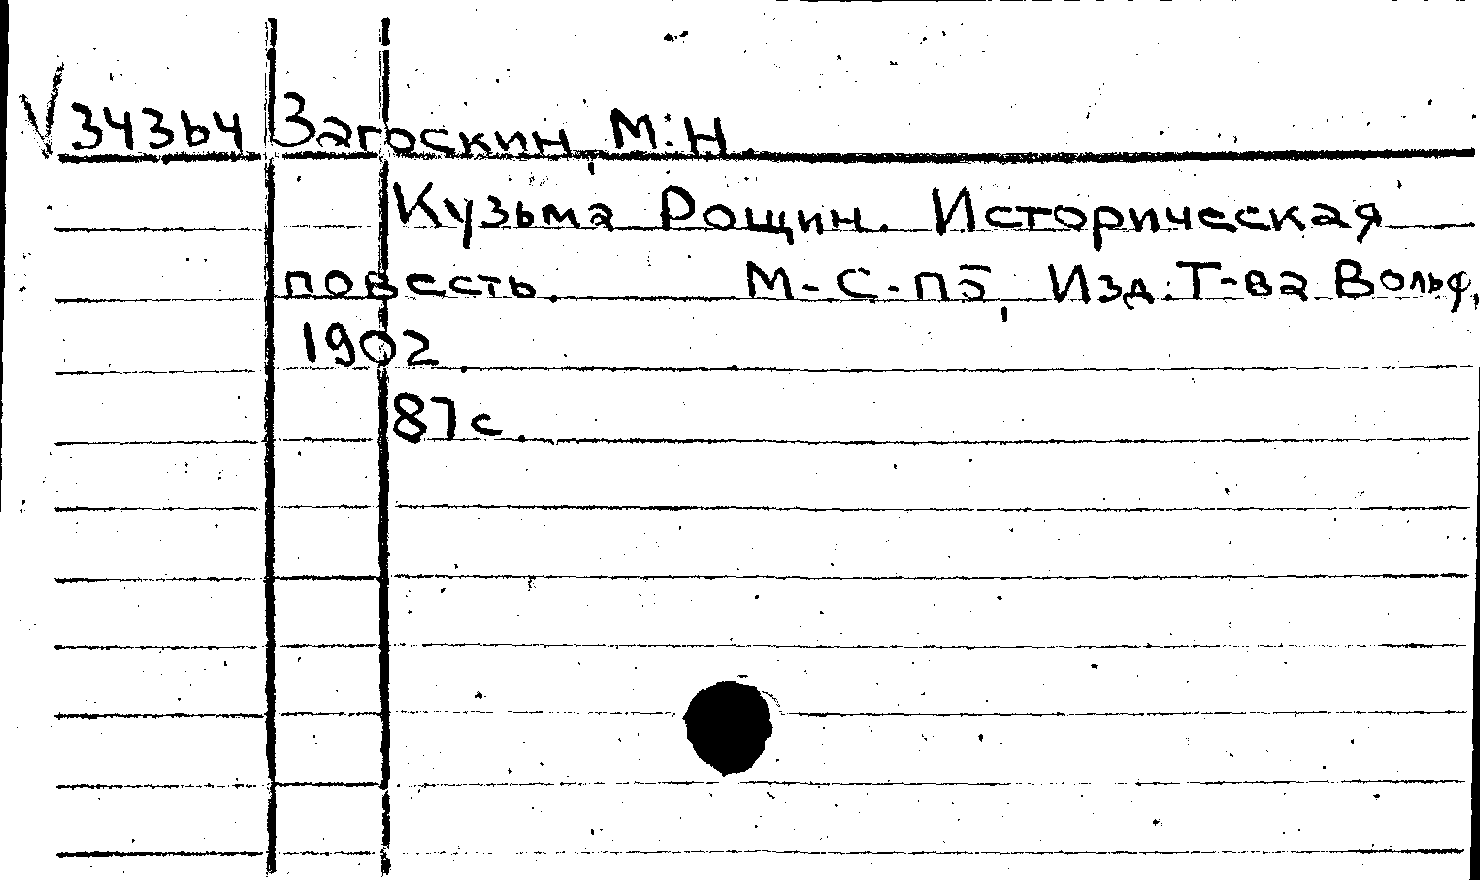 √ 34364 Загоскин, М.Н.
Кузьма Рощин. Историческая
повесть. М-С-пб, Изд. Т-ва Вольф,
1902
87с.